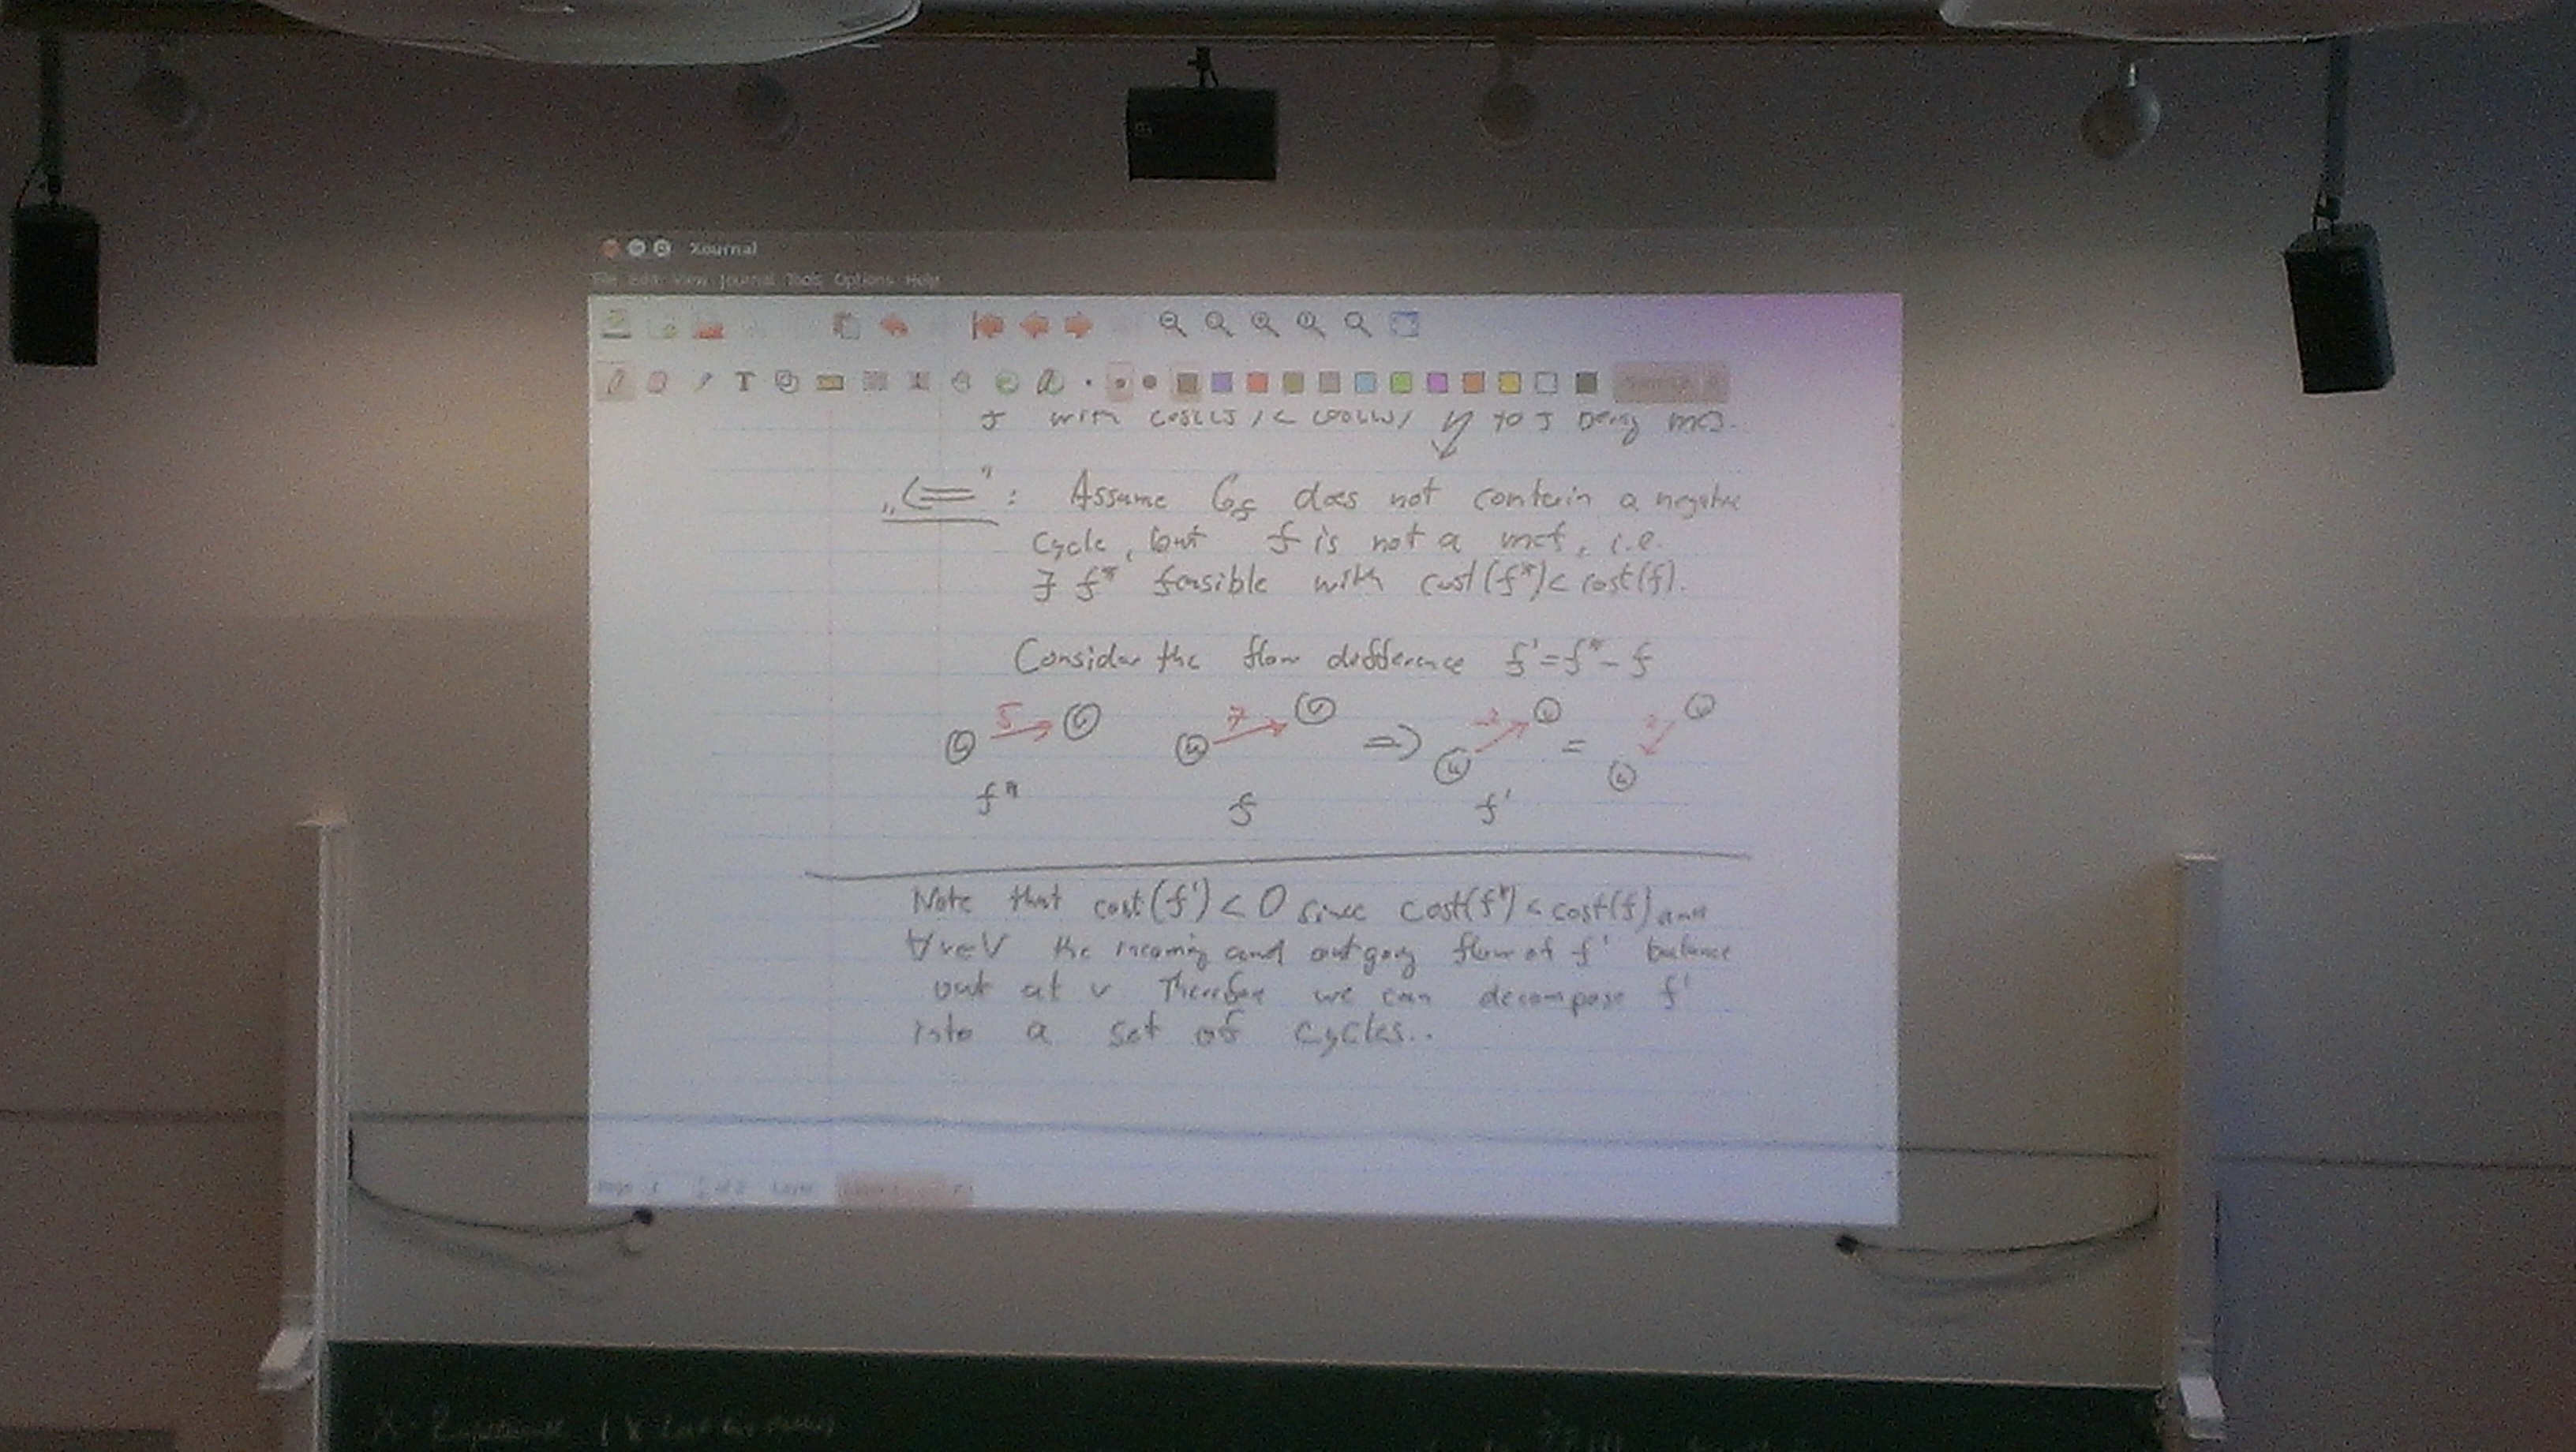 Xournal
File Edit View Journal Tools Options Help
T
f with cost( ) < cost( ) to f being mcf.
„<=": Assume Gf does not contain a negative
cycle, but f is not a mcf, i.e.
∃ f* feasible with cost(f*) < cost(f).
Consider the flow difference f' = f* - f
5 7 -2 2
u v u v => u v = u v
f* f f'
Note that cost(f') < 0 since cost(f*) < cost(f) and
∀v∈V the incoming and outgoing flow of f' balance
out at v Therefore we can decompose f'
into a set of cycles..
Page of 2 Layer